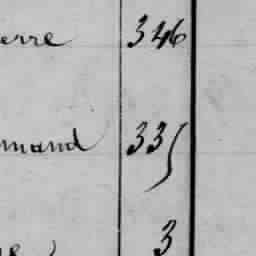 erre 346
mand 335
3